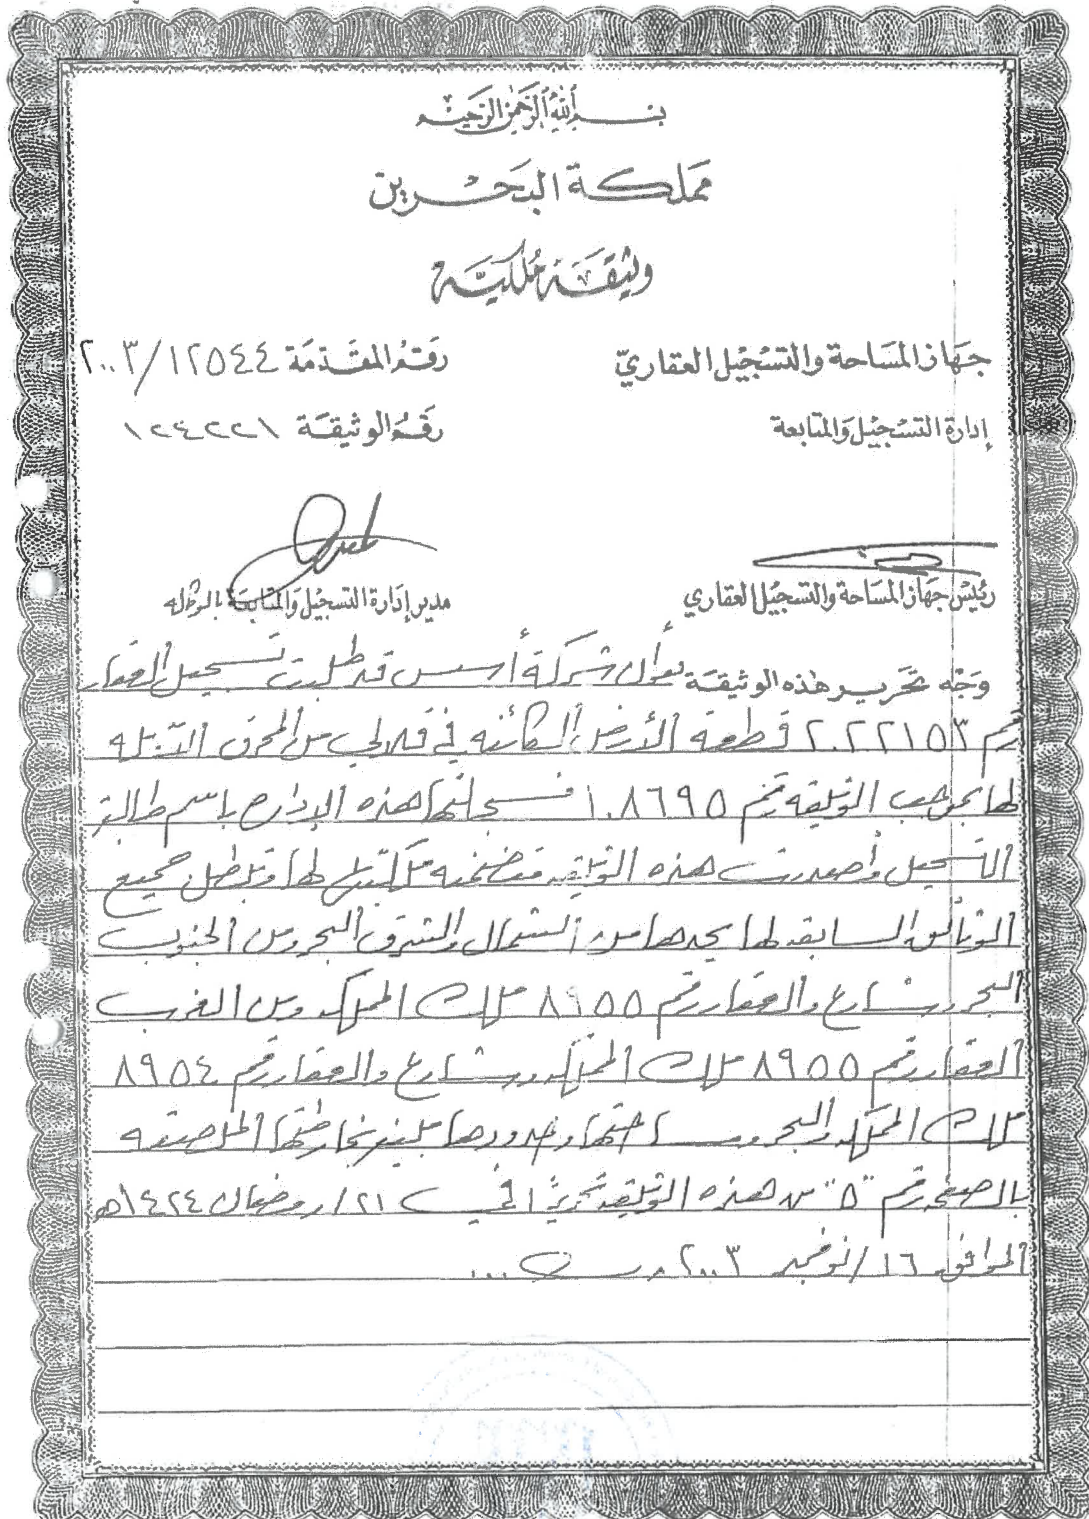 بسم الله الرحمن الرحيم
مملكة البحرين
وثيقة ملكية
جهاز المساحة والتسجيل العقاري
رقم المقدمة ١٢٥٤٤/٢٠٠٣
إدارة التسجيل والمتابعة
رقم الوثيقة ١٢٤٢٢١
رئيس جهاز المساحة والتسجيل العقاري
مدير إدارة التسجيل والمتابعة بالوكالة
وجه تحرير هذه الوثيقة هو أن شركة أسس قد طلبت تسجيل العقار
رقم ٢٠٢٢١٥٣ قطعة الأرض الكائنة في قلالي من المحرق الآيلة
لها بموجب الوثيقة رقم ١٠٨٦٩٥ فسجلتها هذه الإدارة باسم طالبة
التسجيل وأصدرت هذه الوثيقة متضمنة ملكيتها لها وتبطل جميع
الوثائق السابقة لها يحدها من الشمال والشرق البحر ومن الجنوب
البحر وشارع والعقار رقم ٨٩٥٥ ملك المملكة ومن الغرب
العقار رقم ٨٩٥٥ ملك المملكة وشارع والعقار رقم ٨٩٥٤
ملك المملكة والبحر ومساحتها وحدودها مبينة بخارطتها الملصقة
بالصفحة رقم "٥" من هذه الوثيقة تحريرًا في ٢١/رمضان ١٤٢٤هـ
الموافق ١٦/نوفمبر ٢٠٠٣م